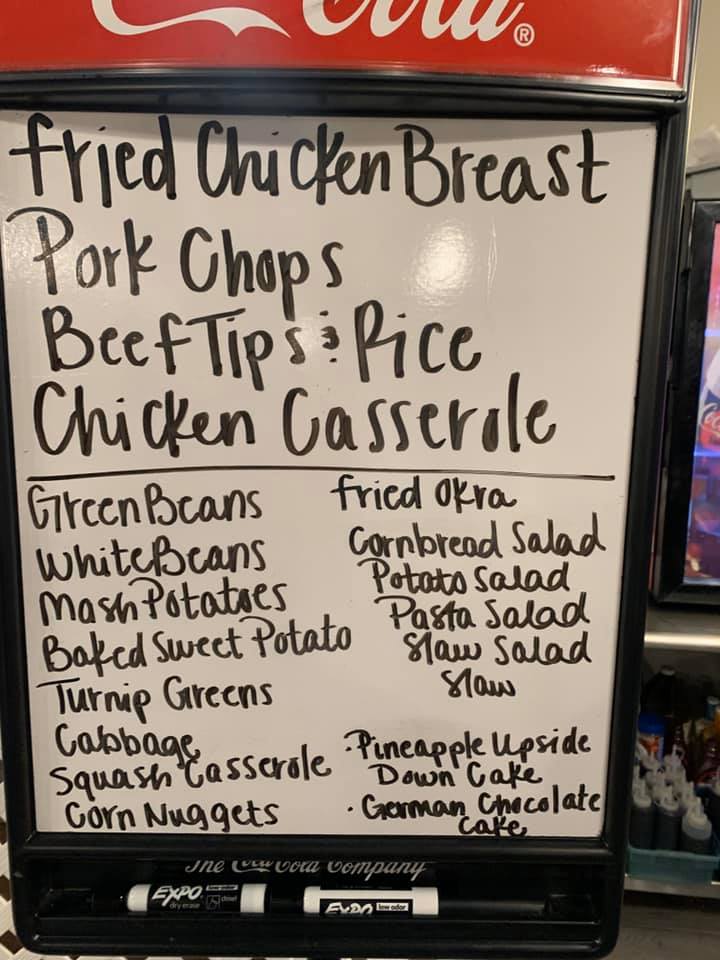 Cola®
Fried Chicken Breast
Pork Chops
Beef Tips & Rice
Chicken Casserole
Green Beans
White Beans
Mash Potatoes
Baked Sweet Potato
Turnip Greens
Cabbage
Squash Casserole
Corn Nuggets
Fried Okra
Cornbread Salad
Potato Salad
Pasta Salad
Slaw Salad
Slaw
·Pineapple Upside
Down Cake
·German Chocolate
Cake
The Coca-Cola Company
EXPO low odor
dry erase
EXPO low odor